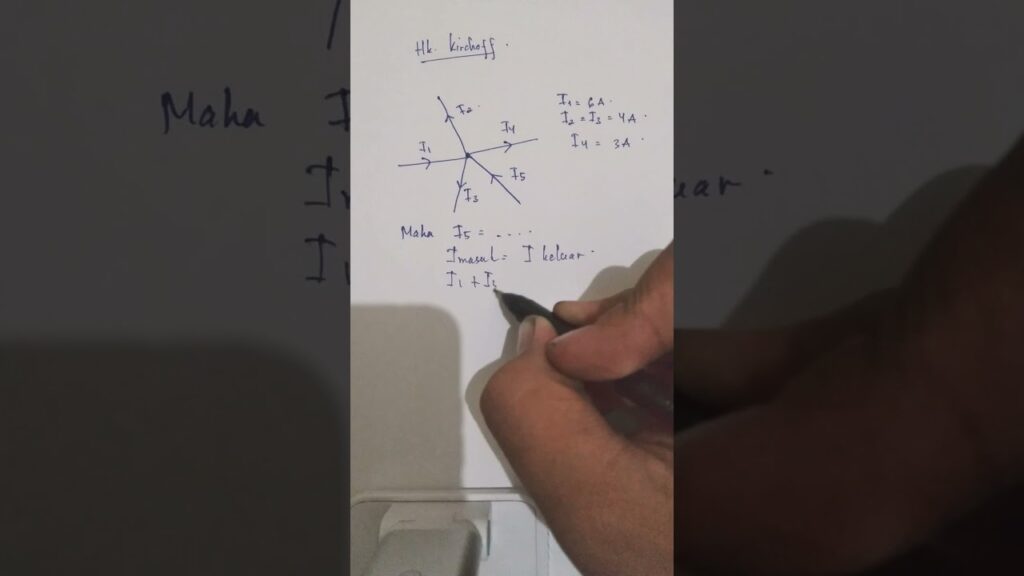 Hk. Kirchoff.
I2.
I4
I1
I5
I3
I1 = 6A.
I2 = I3 = 4A.
I4 = 3A.
Maka I5 = ....
Imasuk = I keluar.
I1 + I5